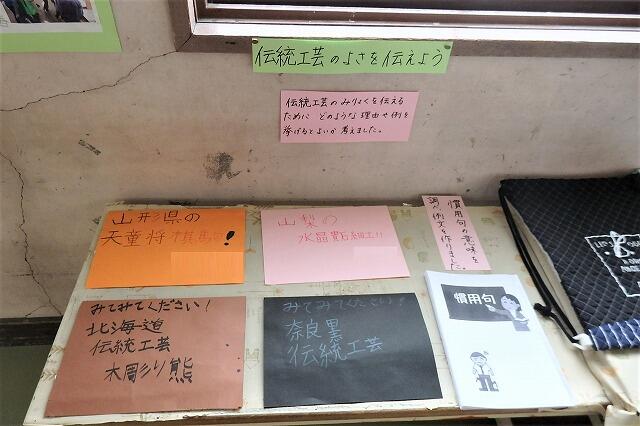 伝統工芸のよさを伝えよう
伝統工芸のみりょくを伝える
ために どのような理由や例を
挙げるとよいか考えました。
山形県の
天童将棋駒!
山梨の
水晶貴石細工!!
慣用句の意味を
調べ例文を作りました。
みてみてください!
北海道
伝統工芸
木周彡り熊
みてみてください!
奈良墨
伝統工芸
慣用句